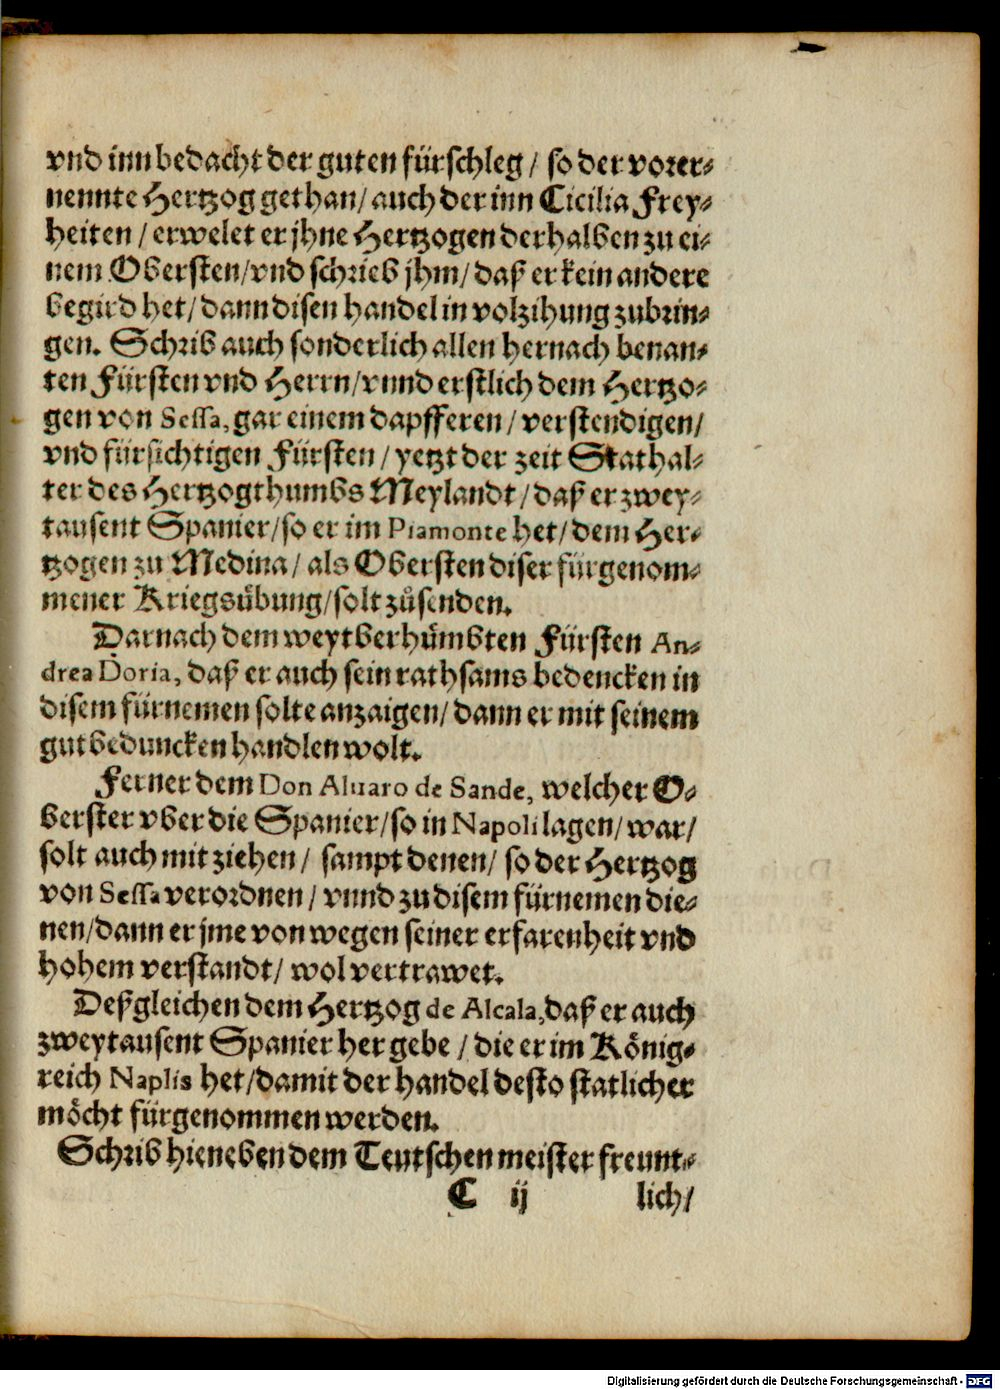 vnd inn bedacht der guten fürschleg / so der vorer⸗
nennte Hertzog gethan / auch der inn Cicilia Frey⸗
heiten / erwelet er jhne Hertzogen derhalben zu ei⸗
nem Obersten / vnd schrieb jhm / daß er kein andere
begird het / dann disen handel in volzihung zubrin⸗
gen. Schrib auch sonderlich allen hernach benan⸗
ten Fürsten vnd Herrn / vnnd erstlich dem Hertzo⸗
gen von Sessa, gar einem dapfferen / verstendigen /
vnd fürsichtigen Fürsten / yetzt der zeit Stathal⸗
ter des Hertzogthumbs Meylandt / daß er zwey⸗
tausent Spanier / so er im Piamonte het / dem Her⸗
tzogen zu Medina / als Obersten diser fürgenom⸗
mener Kriegsübung / solt zůsenden.
Darnach dem weytberhümbten Fürsten An⸗
drea Doria, daß er auch sein rathsams bedencken in
disem fürnemen solte anzaigen / dann er mit seinem
gutbeduncken handlen wolt.
Ferner dem Don Aluaro de Sande, welcher O⸗
berster vber die Spanier / so in Napoli lagen / war /
solt auch mit ziehen / sampt denen / so der Hertzog
von Sessa verordnen / vnnd zu disem fürnemen die⸗
nen / dann er jme von wegen seiner erfarenheit vnd
hohem verstandt / wol vertrawet.
Deßgleichen dem Hertzog de Alcala, daß er auch
zweytausent Spanier her gebe / die er im König⸗
reich Naplis het / damit der handel desto statlicher
möcht fürgenommen werden.
Schrib hieneben dem Teutschen meister freunt⸗
C ij lich /
Digitalisierung gefördert durch die Deutsche Forschungsgemeinschaft - DFG